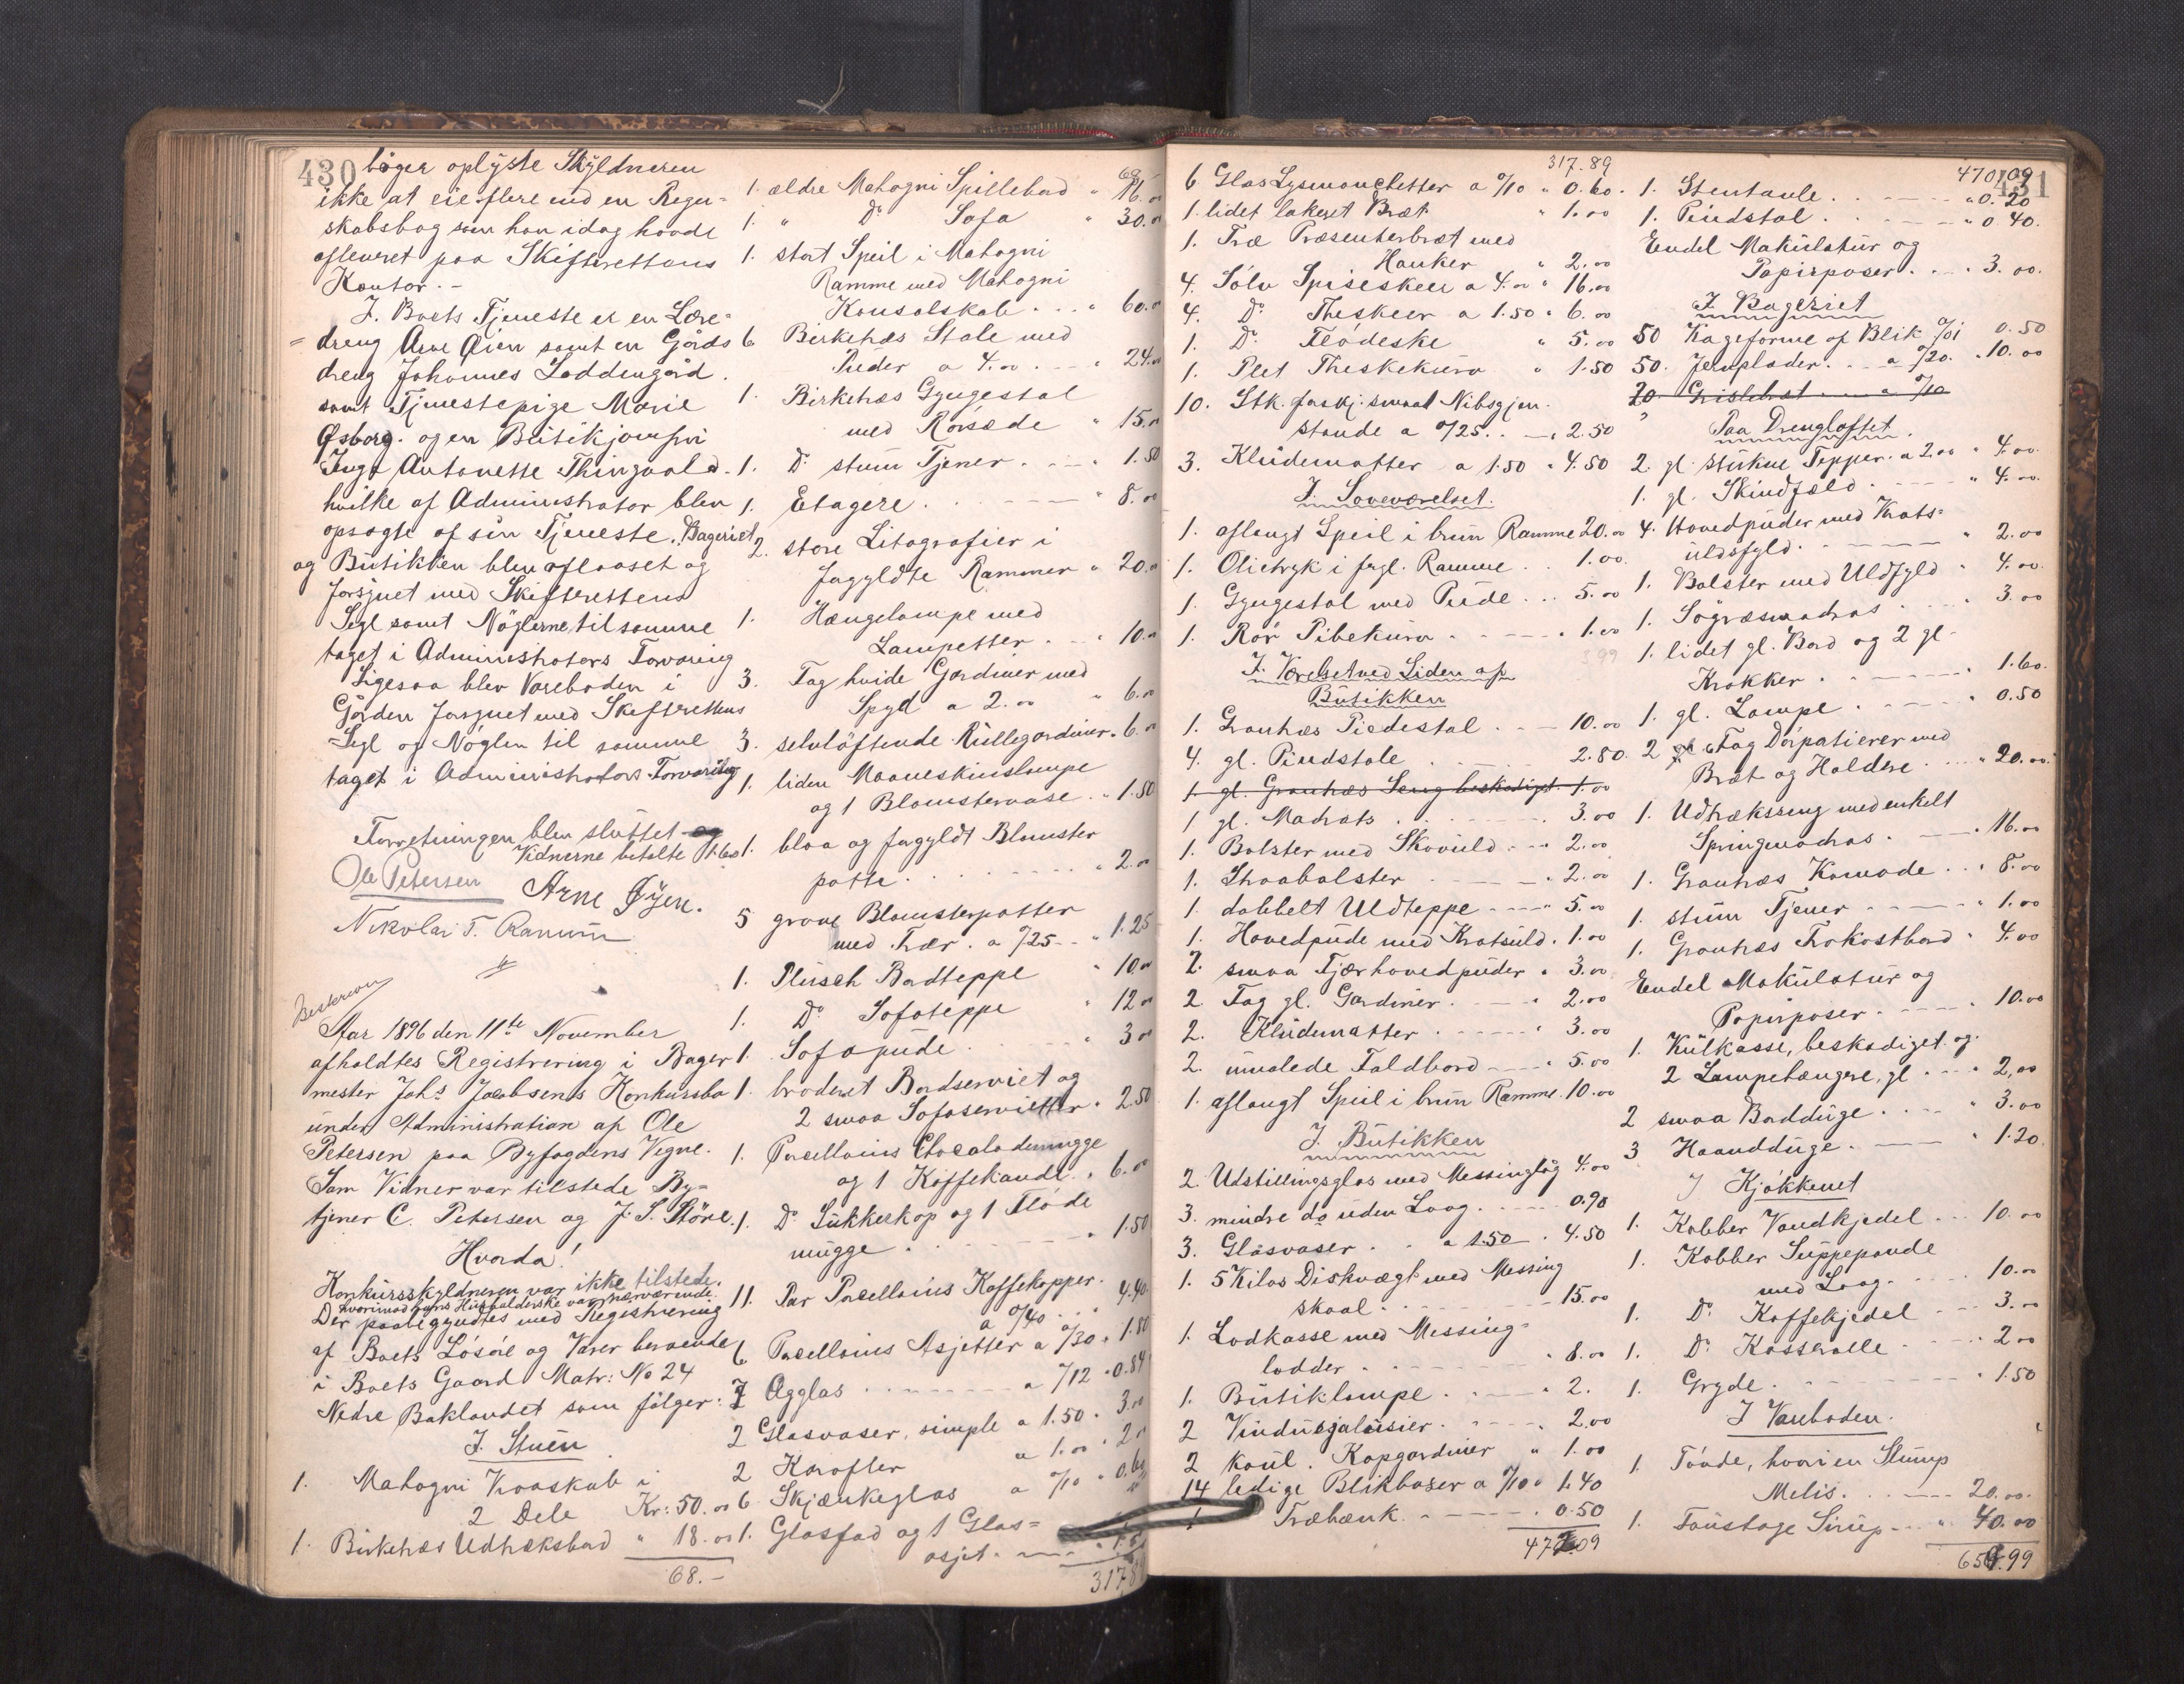 430
bøger oplyste Skyldneren
ikke at eie flere end en Regn-
skabsbog som han idag havde
afleveret paa Skifterettens
Kontor.-
I. Boets Tjeneste er en Lære-
dreng Arne Øien samt en Gårds
dreng Johannes Loddengård.
samt Tjenestepige Marie
Øsborg. og en Butikjomfru
Inga Antonette Thingvold.
hvilke af Administrator blev
opsagte af sin Tjeneste. Bageriet
og Butikken blev aflaaset og
forsynet med Skifterettens
Segl samt Nøglerne til samme
taget i Administrators Forvaring
Ligesaa blev Vareboden i
Gården forsynet med Skifterettens
Segl og Nøglen til samme
taget i Administrators Forvaring
Forretningen blev sluttet
Vidnerne betalte 1.60
Ole Petersen Arne Øyen.
Nikolai T. Ranum
Beskreven
Aar 1896 den 11te November
afholdtes Registrering i Bager
mester Johs Jacobsens Konkursbo
under Administration af Ole
Petersen paa Byfogdens Vegne.
Som Vidner var tilstede By-
tjener C. Petersen og J. S. Störe.
Hvorda!
Konkursskyldneren var ikke tilstede.
hvorimod hans Husholderske var nærværende.
Der paabegyndtes med Registrering
af Boets Løsöre og Varer beroende
i Boets Gaard Matr: No 24
Nedre Baklandet som følger:
I. Stuen
1. Mahogni Kroskab i
2 Dele Kr: 50.00
1. Birketræs Udtræksbord " 18.00
68.-
68
1. ældre Mahogni Spillebord " 16.00
1. " Do Sofa " 30.00
1. stort Speil i Mahogni
Ramme med Mahogni
Konsolskab . . . " 60.00
6 Birketræs Stole med
Puder a 4.00 . . " 24.00
1. Birketræs Gyngestol
med Rörsæde " 15.00
1. Do stum Tjener . . . " 1.50
1. Etagere . . . " 8.00
2. store Litografier i
forgyldte Rammer " 20.00
1. Hængelampe med
Lampetter . . " 10.00
3. Fag hvide Gardiner med
Spyd a 2.00 " 6.00
3. selvløftende Rullegardiner " 6.00
1. liden Maaneskinslampe
og 1 Blomstervase . " 1.50
1. blaa og forgyldt Blomster
potte . . . " 2.00
5 grove Blomsterpotter
med Trær. a /25 - " 1.25
1. Plüsch Bordteppe " 10.00
1. Do Sofateppe " 12.00
1. Sofapude . . " 3.00
1. broderet Bordserviet og
2 smaa Sofaservietter " 2.50
1. Porcellains Chocolademugge
og 1 Kaffekande. " 6.00
1. Do Sukkerkop og 1 Fløde
mugge . . . " 1.50
11. Par Porcellains Kaffekopper.
a 0/40 . . " 4.40
6 Porcellains Asjetter a 0/30 " 1.80
7 Ægglas . . . a /12 " 0.84
2 Glasvaser, simple a 1.50 " 3.00
2 Karafler a 1.00 " 2.00
6 Skjænkeglas a 0/10 " 0.60
1. Glasfad og 1 Glas-
asjet. . .
317.8
317.89
6 Glas Lysmanchetter a 0/10 " 0.60.
1. lidet lakeret Bræt " 1.00
1. Træ Præsenterbræt med
Hanker " 2.00
4. Sölv Spiseskeer a 4.00 " 16.00
4. Do Theskeer a 1.50 " 6.00
1. Do Flödeske " 5.00
1. Plet Theskekurv " 1.50
10. Stk. forskj. smaa Nibsgjen-
stande a 0/25 . . " 2.50
3. Kludematter a 1.50 " 4.50
I. Soveværelset.
1. aflangt Speil i brun Ramme 20.00
1. Olietryk i forgl. Ramme . . 1.00.
1. Gyngestol med Pude . . . 5.00
1. Rör Pibekurv . . . " 1.00
399
I. Værelset ved Siden af
Butikken
1. Grantræs Piedestal . . . 10.00
4. gl. Pindstole . . . 2.80.
1. gl. Grantræs Seng beskadiget. 1.00
1 gl. Madrats . . . 3.00
1. Bolster med Skovuld . . . 2.00
1. Straabolster . . . 2.00
1. dobbelt Uldteppe . . . 5.00
1. Hovedpude med Kratsuld. 1.00
2. smaa Fjærhovedpuder " 3.00
2 Fag gl. Gardiner. . . . 2.00
2. Kludematter . . . 3.00
2. umalede Faldbord . . . 5.00
1. aflangt Speil i brun Ramme. 10.00
I. Butikken
2. Udstillingsglas med Messinglåg 4.00
3. mindre do uden Laag. . . . 0.90
3. Glasvaser . . a 1.50 . 4.50
1. 5 Kilos Diskvægt med Messing
skaal. . . . 15.00
1. Lodkasse med Messing-
lodder . . . " 8.00
1. Butiklampe . . . " 2.
2 Vindusjalusier . . . 2.00
2 Kapgardiner " 1.00
14 ledige Blikbaser a 0/10 " 1.40
1 Træbænk. . . . 0.50
472.09
470.09
431
1. Stentavle . . . " 0.20
1. Pindstol . . . " 0.40.
Endel Makulatur og
Papirposer . . . 3.00.
I. Bageriet
50 Kageforme af Blik 0/01 0.50
50. Jernplader. . . a 0/20. " 10.00
20 a 0/10
Paa Drengloftet.
2. gl. stukne Tepper. a 2.00 " 4.00.
1. gl. Skindfæld . . . " 4.00.
4. Hovedpuder med Krats-
uldsfyld. . . . " 2.00
1. Bolster med Uldfyld " 4.00.
1. Sögræsmadras . . . 3.00
1. lidet gl. Bord og 2 gl.
Krakker . . . " 1.60.
1. gl. Lampe . . . " 0.50
2 Fag Dörpatierer med
Bræt og Holdere . . . " 20.00.
1. Udtræksseng med enkelt
Springmadras . . . . 16.00
1. Grantræs Komode . . . 8.00
1. stum Tjener . . . " 1.00
1. Grantræs Frokostbord " 4.00
Endel Makulatur og
Papirposer. . . . " 10.00
1. Kulkasse, beskadiget og
2 Lampehængere, gl . . . " 2,00
2 smaa Badduge . . . " 3.00
3 Haandduge. . . . " 1.20.
I Kjøkkenet
1. Kobber Vandkjedel . . . 10.00
1. Kobber Suppepande
med Laag. . . . 10.00
1. Do Kaffekjedel . . . 3.00
1. Do Kasserolle . . . 2.00
1. Gryde . . . " 1.50
I Vareboden.
1. Tønde, hvori en Slump
Melis. . . . 20.00.
1. Foustage Sirup . . . " 40.00
656.99